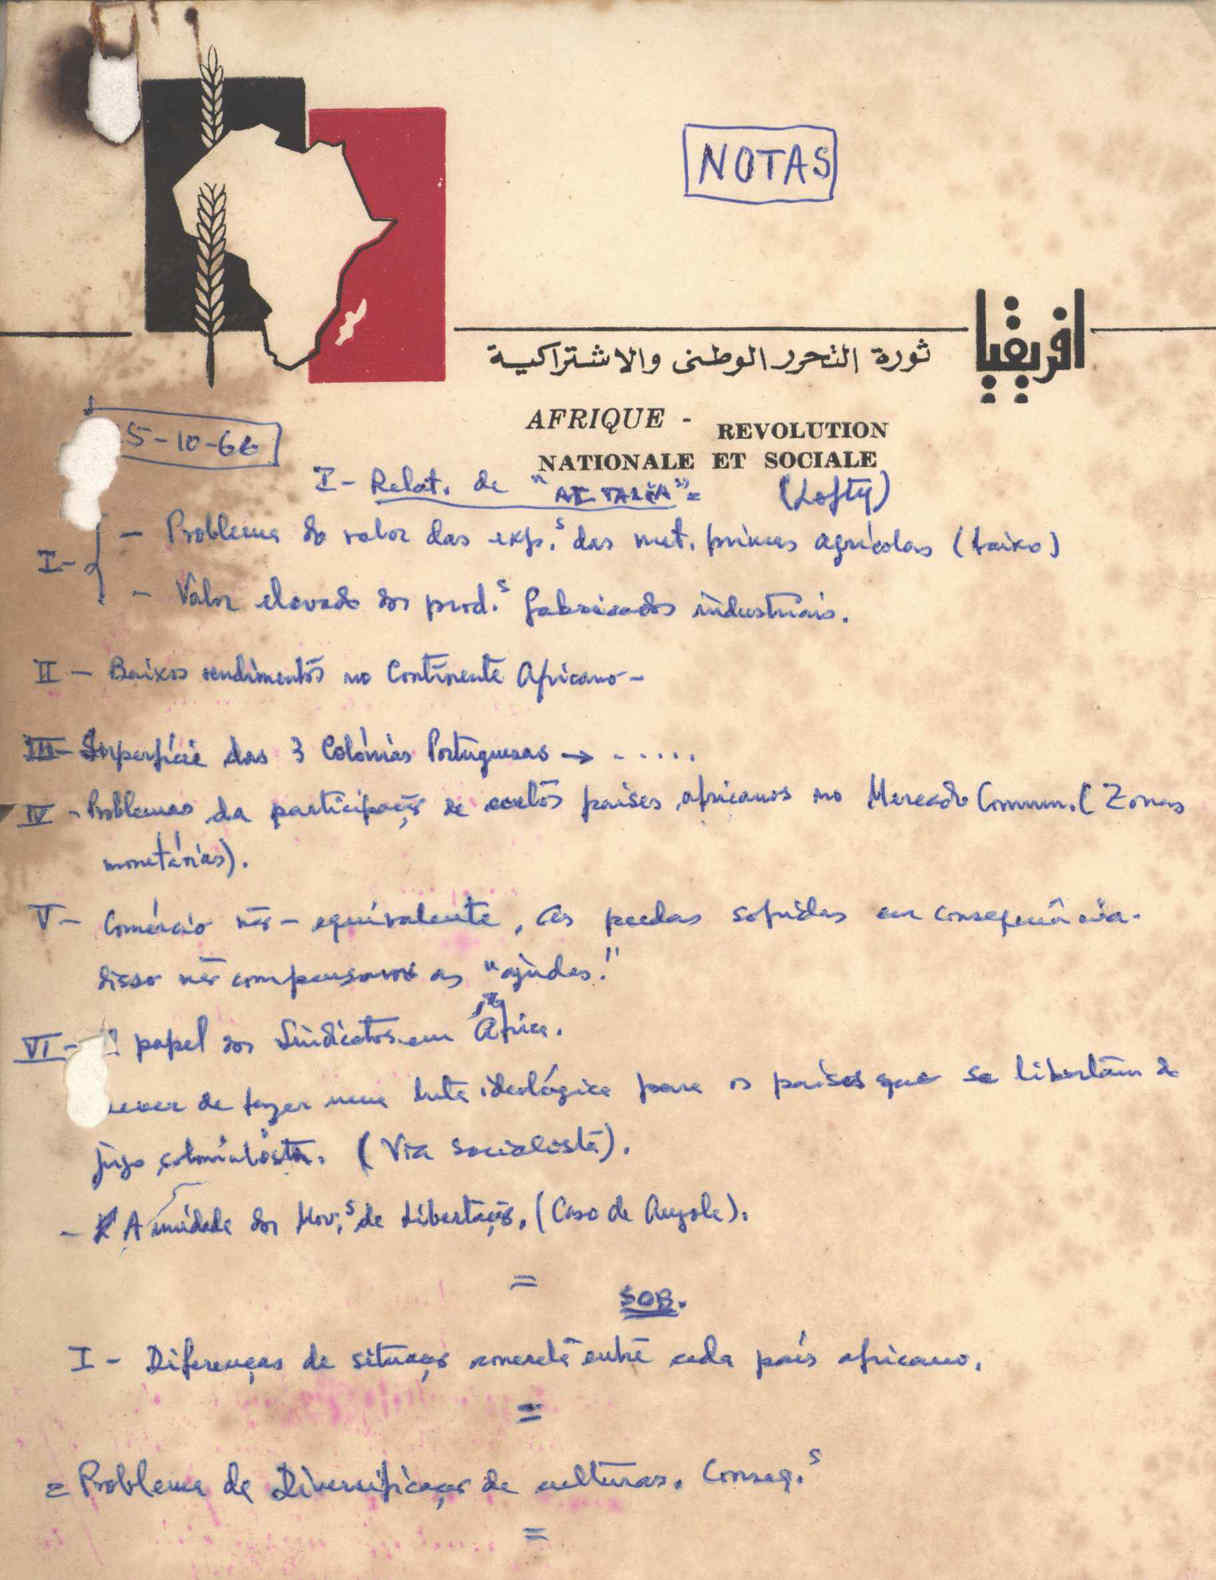 NOTAS
افريقيا
ثورة التحرر الوطنى والاشتراكية
AFRIQUE - REVOLUTION
NATIONALE ET SOCIALE
5-10-66
I - Relat. de "AL TALIA" = (Lofty)
I - { - Problema do valor das exp.s das mat. primas agrícolas (baixo)
- Valor elevado dos prod.s fabricados industriais.
II - Baixos rendimentos no Continente Africano -
III - Superfície das 3 Colónias Portuguesas → .....
IV - Problemas da participação de certos países africanos no Mercado Comum. (Zonas
monetárias).
V - Comércio não-equivalente, as perdas sofridas em consequência
disso não compensam as "ajudas."
VI - O papel dos Sindicatos em África.
dever de fazer uma luta ideológica para os países que se libertam do
jugo colonialista. (Via socialista).
- A unidade dos Mov.s de Libertação. (Caso de Angola).
=
SOB.
I - Diferenças de situação concreta entre cada país africano.
=
= Problema da Diversificação de culturas. Conseq.s
=